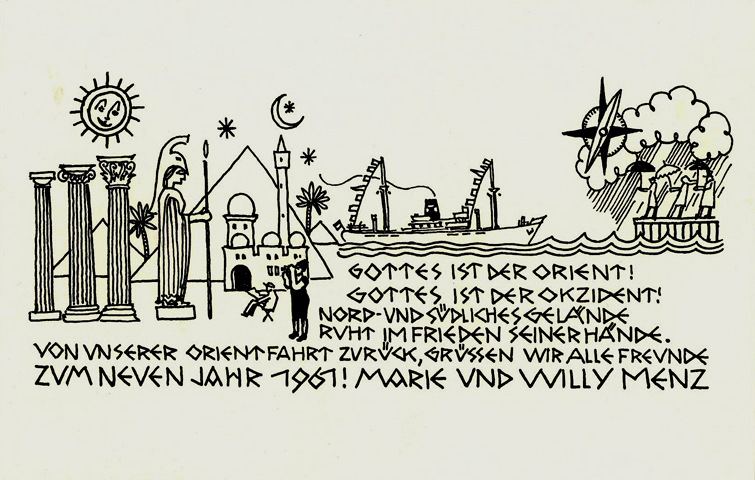 GOTTES IST DER ORIENT!
GOTTES IST DER OKZIDENT!
NORD-UND SÜDLICHES GELÄNDE
RUHT IM FRIEDEN SEINER HÄNDE.
VON UNSERER ORIENTFAHRT ZURÜCK, GRÜSSEN WIR ALLE FREUNDE
ZUM NEUEN JAHR 1961! MARIE UND WILLY MENZ